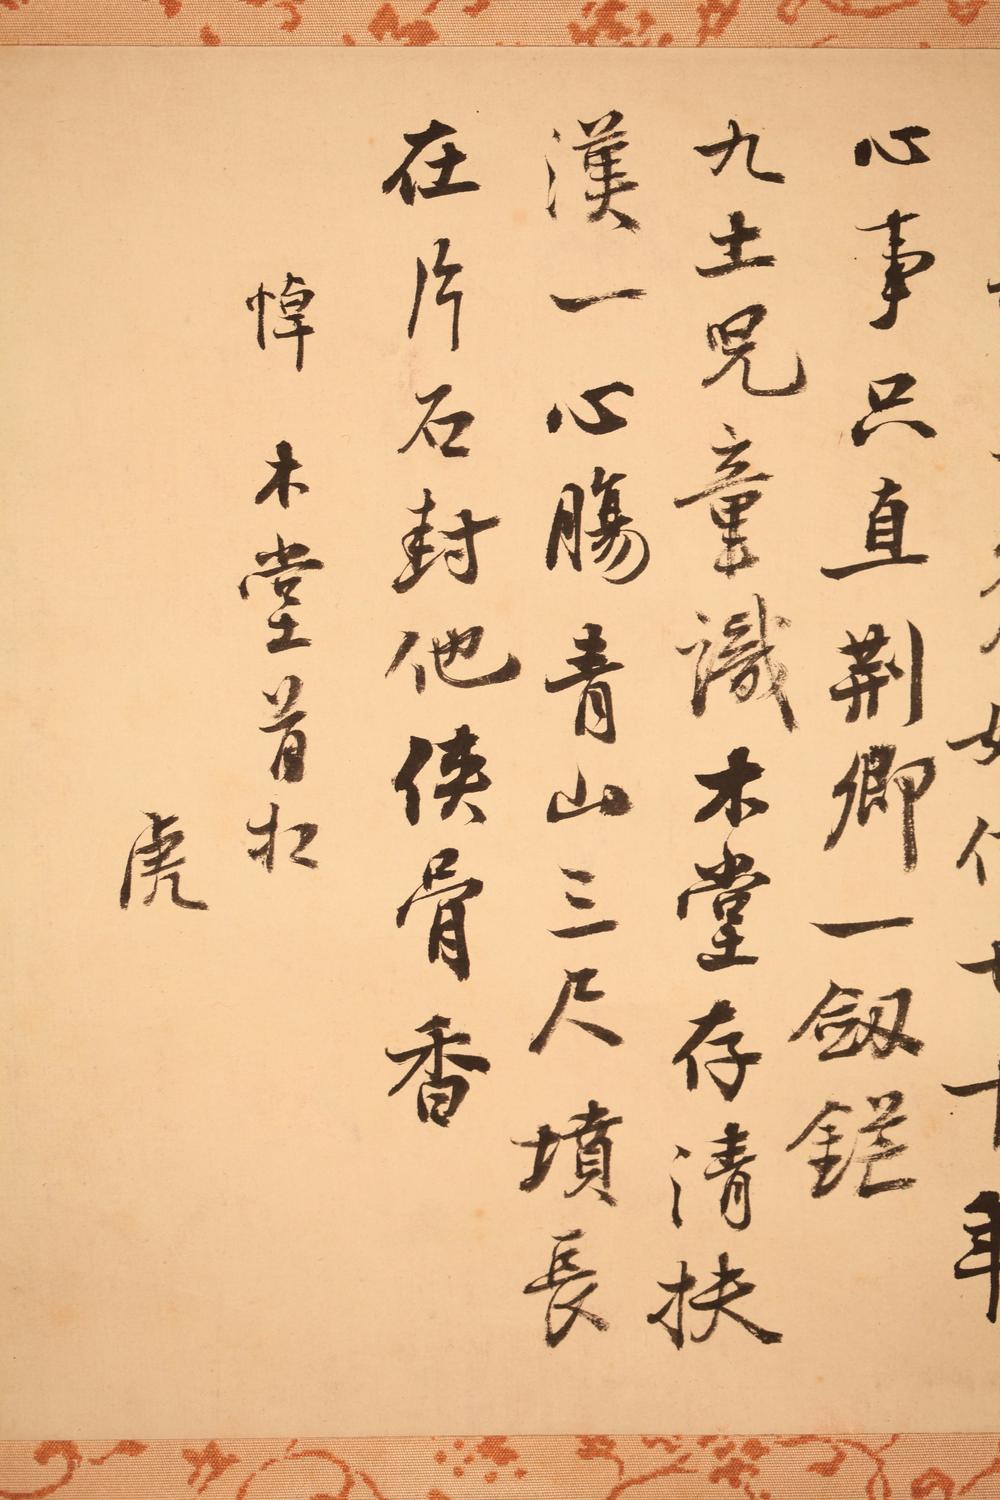 年
心事只直荆卿一劔鋩
九土児童識木堂存清扶
漢一心腸青山三尺墳長
在片石封他俠骨香
悼木堂首相
虎